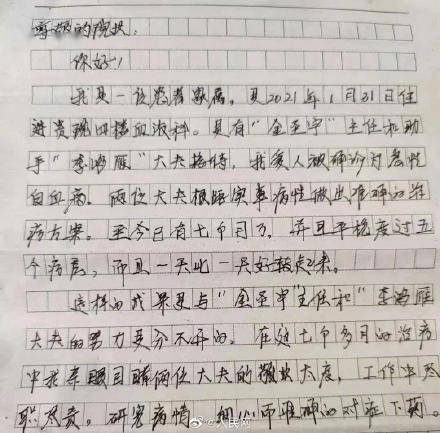 尊敬的院长:
你好!
我是一位患者家属,是2021年1月31日住
进贵院四楼血液科。是有"金亚宁"主任和助
手"李鸿雁"大夫接待,我爱人被确诊为急性
白血病。两位大夫根据实事病性做出准确的治
疗方案。至今已有七个月了,并且平稳度过五
个疗层,而且一天比一天好转起来。
这样的成果是与"金亚宁主任和"李鸿雁
大夫的努力是分不开的。在这七个多月的治疗
中我亲眼目睹两位大夫的敬业太度,工作中尽
职尽责。研究病情,细心而准确的对症下药。
@人民网